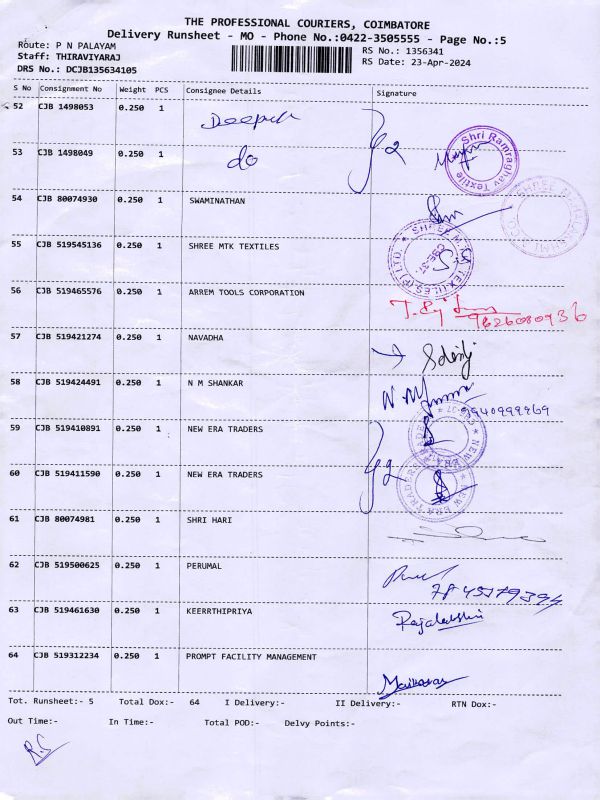 THE PROFESSIONAL COURIERS, COIMBATORE
Delivery Runsheet - MO - Phone No.:0422-3505555 - Page No.:5
Route: P N PALAYAM
Staff: THIRAVIYARAJ
DRS No.: DCJB135634105
RS No.: 1356341
RS Date: 23-Apr-2024
S No Consignment No Weight PCS Consignee Details Signature
52 CJB 1498053 0.250 1 Deepak
53 CJB 1498049 0.250 1 do
} 2
Shri Ramraghav Textile
54 CJB 80074930 0.250 1 SWAMINATHAN
55 CJB 519545136 0.250 1 SHREE MTK TEXTILES
56 CJB 519465576 0.250 1 ARREM TOOLS CORPORATION
9626080936
57 CJB 519421274 0.250 1 NAVADHA
58 CJB 519424491 0.250 1 N M SHANKAR
9940999969
59 CJB 519410891 0.250 1 NEW ERA TRADERS
NEW ERA TRADERS
60 CJB 519411590 0.250 1 NEW ERA TRADERS
} 2
NEW ERA TRADERS
61 CJB 80074981 0.250 1 SHRI HARI
62 CJB 519500625 0.250 1 PERUMAL
63 CJB 519461630 0.250 1 KEERRTHIPRIYA Rajalakshmi
64 CJB 519312234 0.250 1 PROMPT FACILITY MANAGEMENT
Tot. Runsheet:- 5 Total Dox:- 64 I Delivery:- II Delivery:- RTN Dox:-
Out Time:- In Time:- Total POD:- Delvy Points:-
R.S